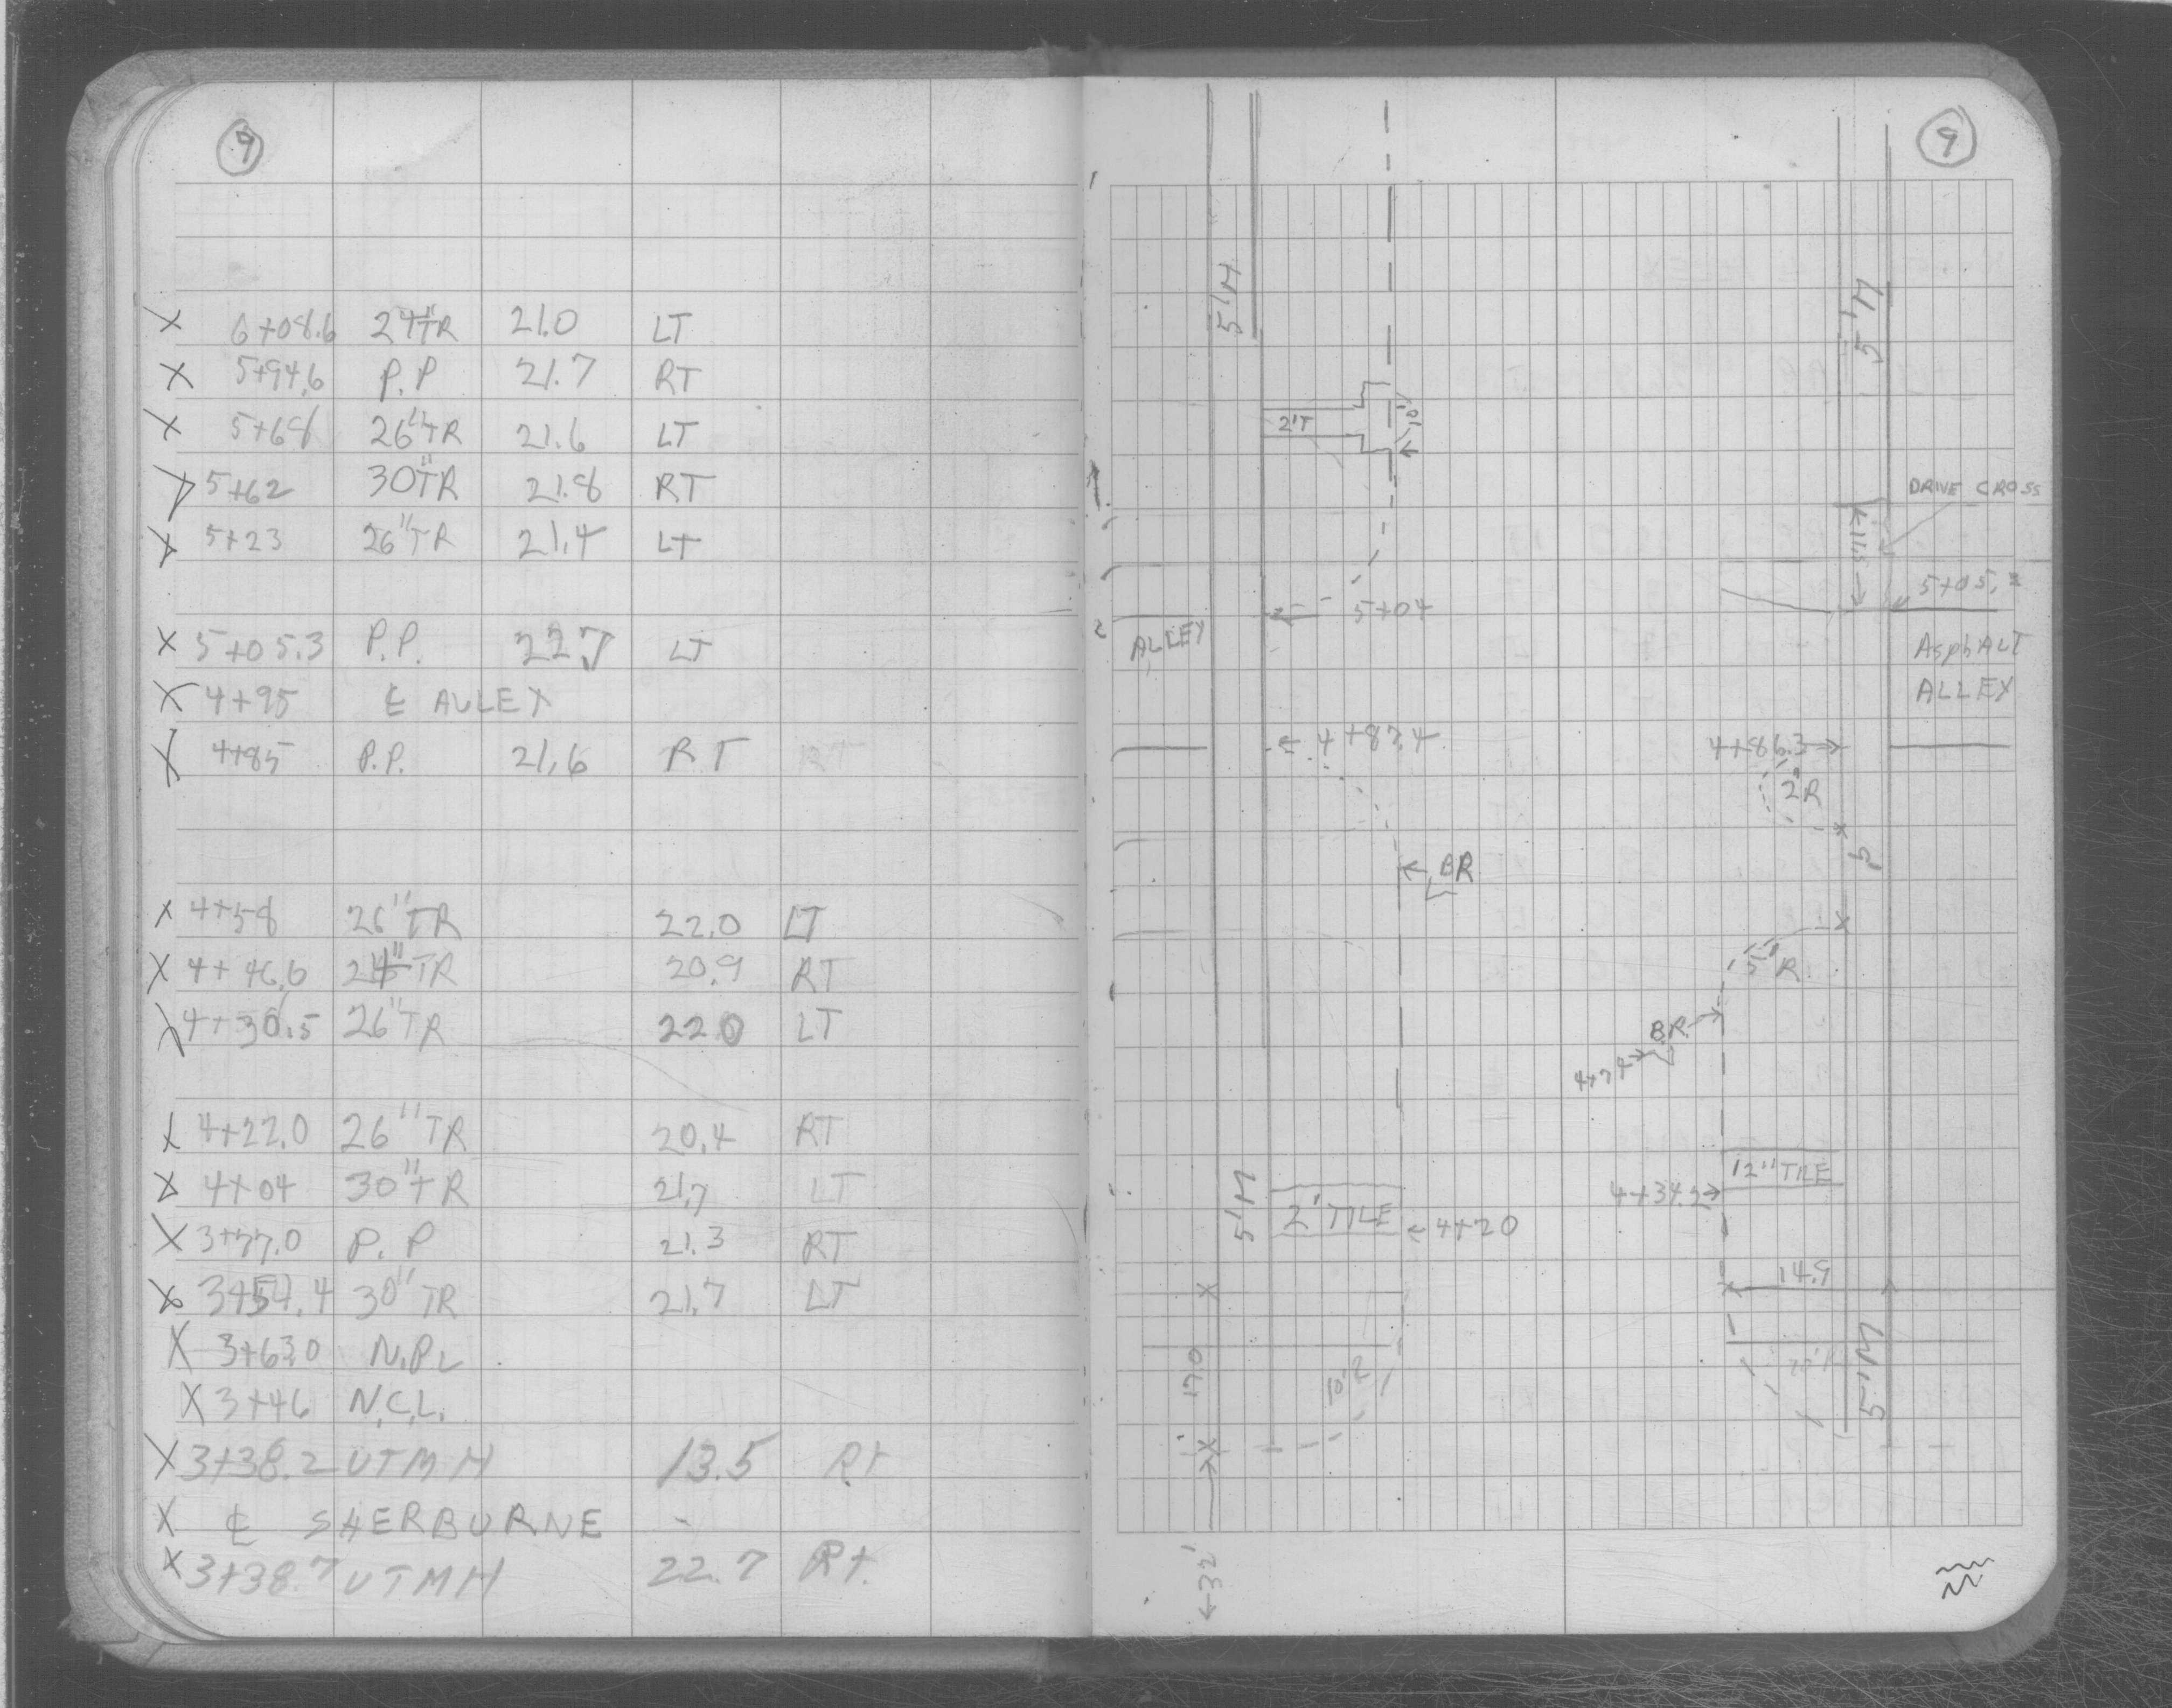 9
X 6+08.6 24"TR 21.0 LT
X 5+94.6 P.P 21.7 RT
X 5+68 26"TR 21.6 LT
X 5+62 30"TR 21.8 RT
X 5+23 26"TR 21.4 LT
X 5+05.3 P.P. 22.7 LT
X 4+95 ℄ ALLEY
X 4+85 P.P. 21.6 RT
X 4+58 26"TR 22.0 LT
X 4+46.6 24"TR 20.9 RT
X 4+30.5 26"TR 22.0 LT
X 4+22.0 26"TR 20.4 RT
X 4+04 30"TR 21.7 LT
X 3+77.0 P.P 21.3 RT
X 30"TR 21.7 LT
X 3+63.0 N.P.L.
X 3+46 N.C.L.
X 3+38.2 UTMH 13.5 Rt
X ℄ SHERBURNE -
X 3+38.7 UTMH 22.7 Rt.
9
5'M
5'M
2'T
10'
DRIVE CROSS
11.5
5+04
5+05.
ALLEY
AsphALT
ALLEY
4+87.4
4+86.3
2'R
BR
5'R
B.R.
4+74
12" TILE
4+34.2
5'M
2' TILE
4+20
14.9
5'M
17.0
32'